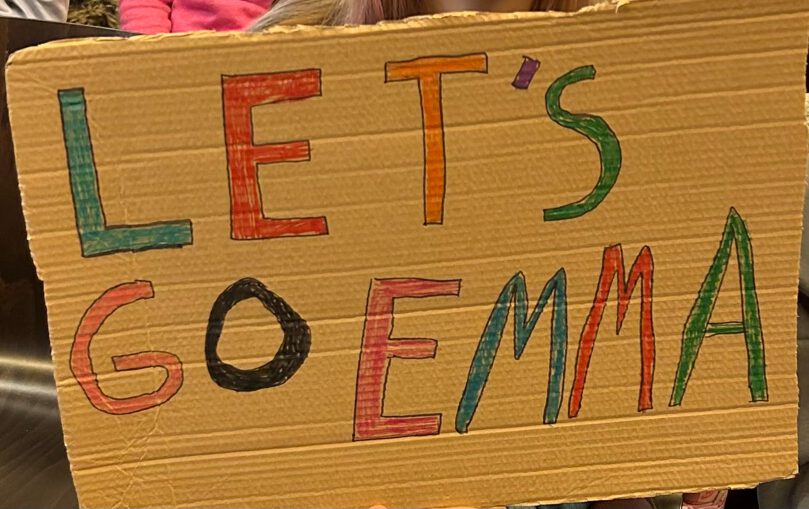 LET'S
GO EMMA